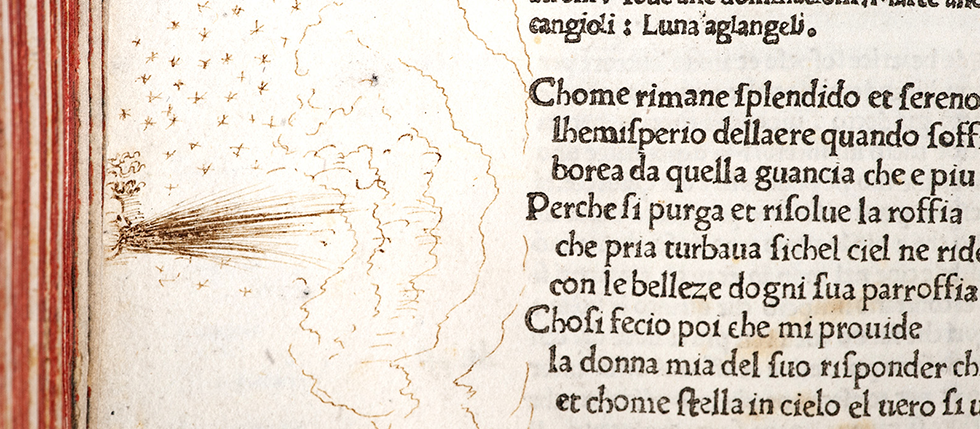 cangioli : Luna aglangeli.
Chome rimane ſplendido et ſereno
lhemiſperio dellaere quando ſoff
borea da quella guancia che e piu
Perche ſi purga et riſolue la roffia
che pria turbaua ſichel ciel ne ride
con le belleze dogni ſua parroffia
Choſi fecio poi che mi prouide
la donna mia del ſuo riſponder ch
et chome ſtella in cielo el uero ſi u